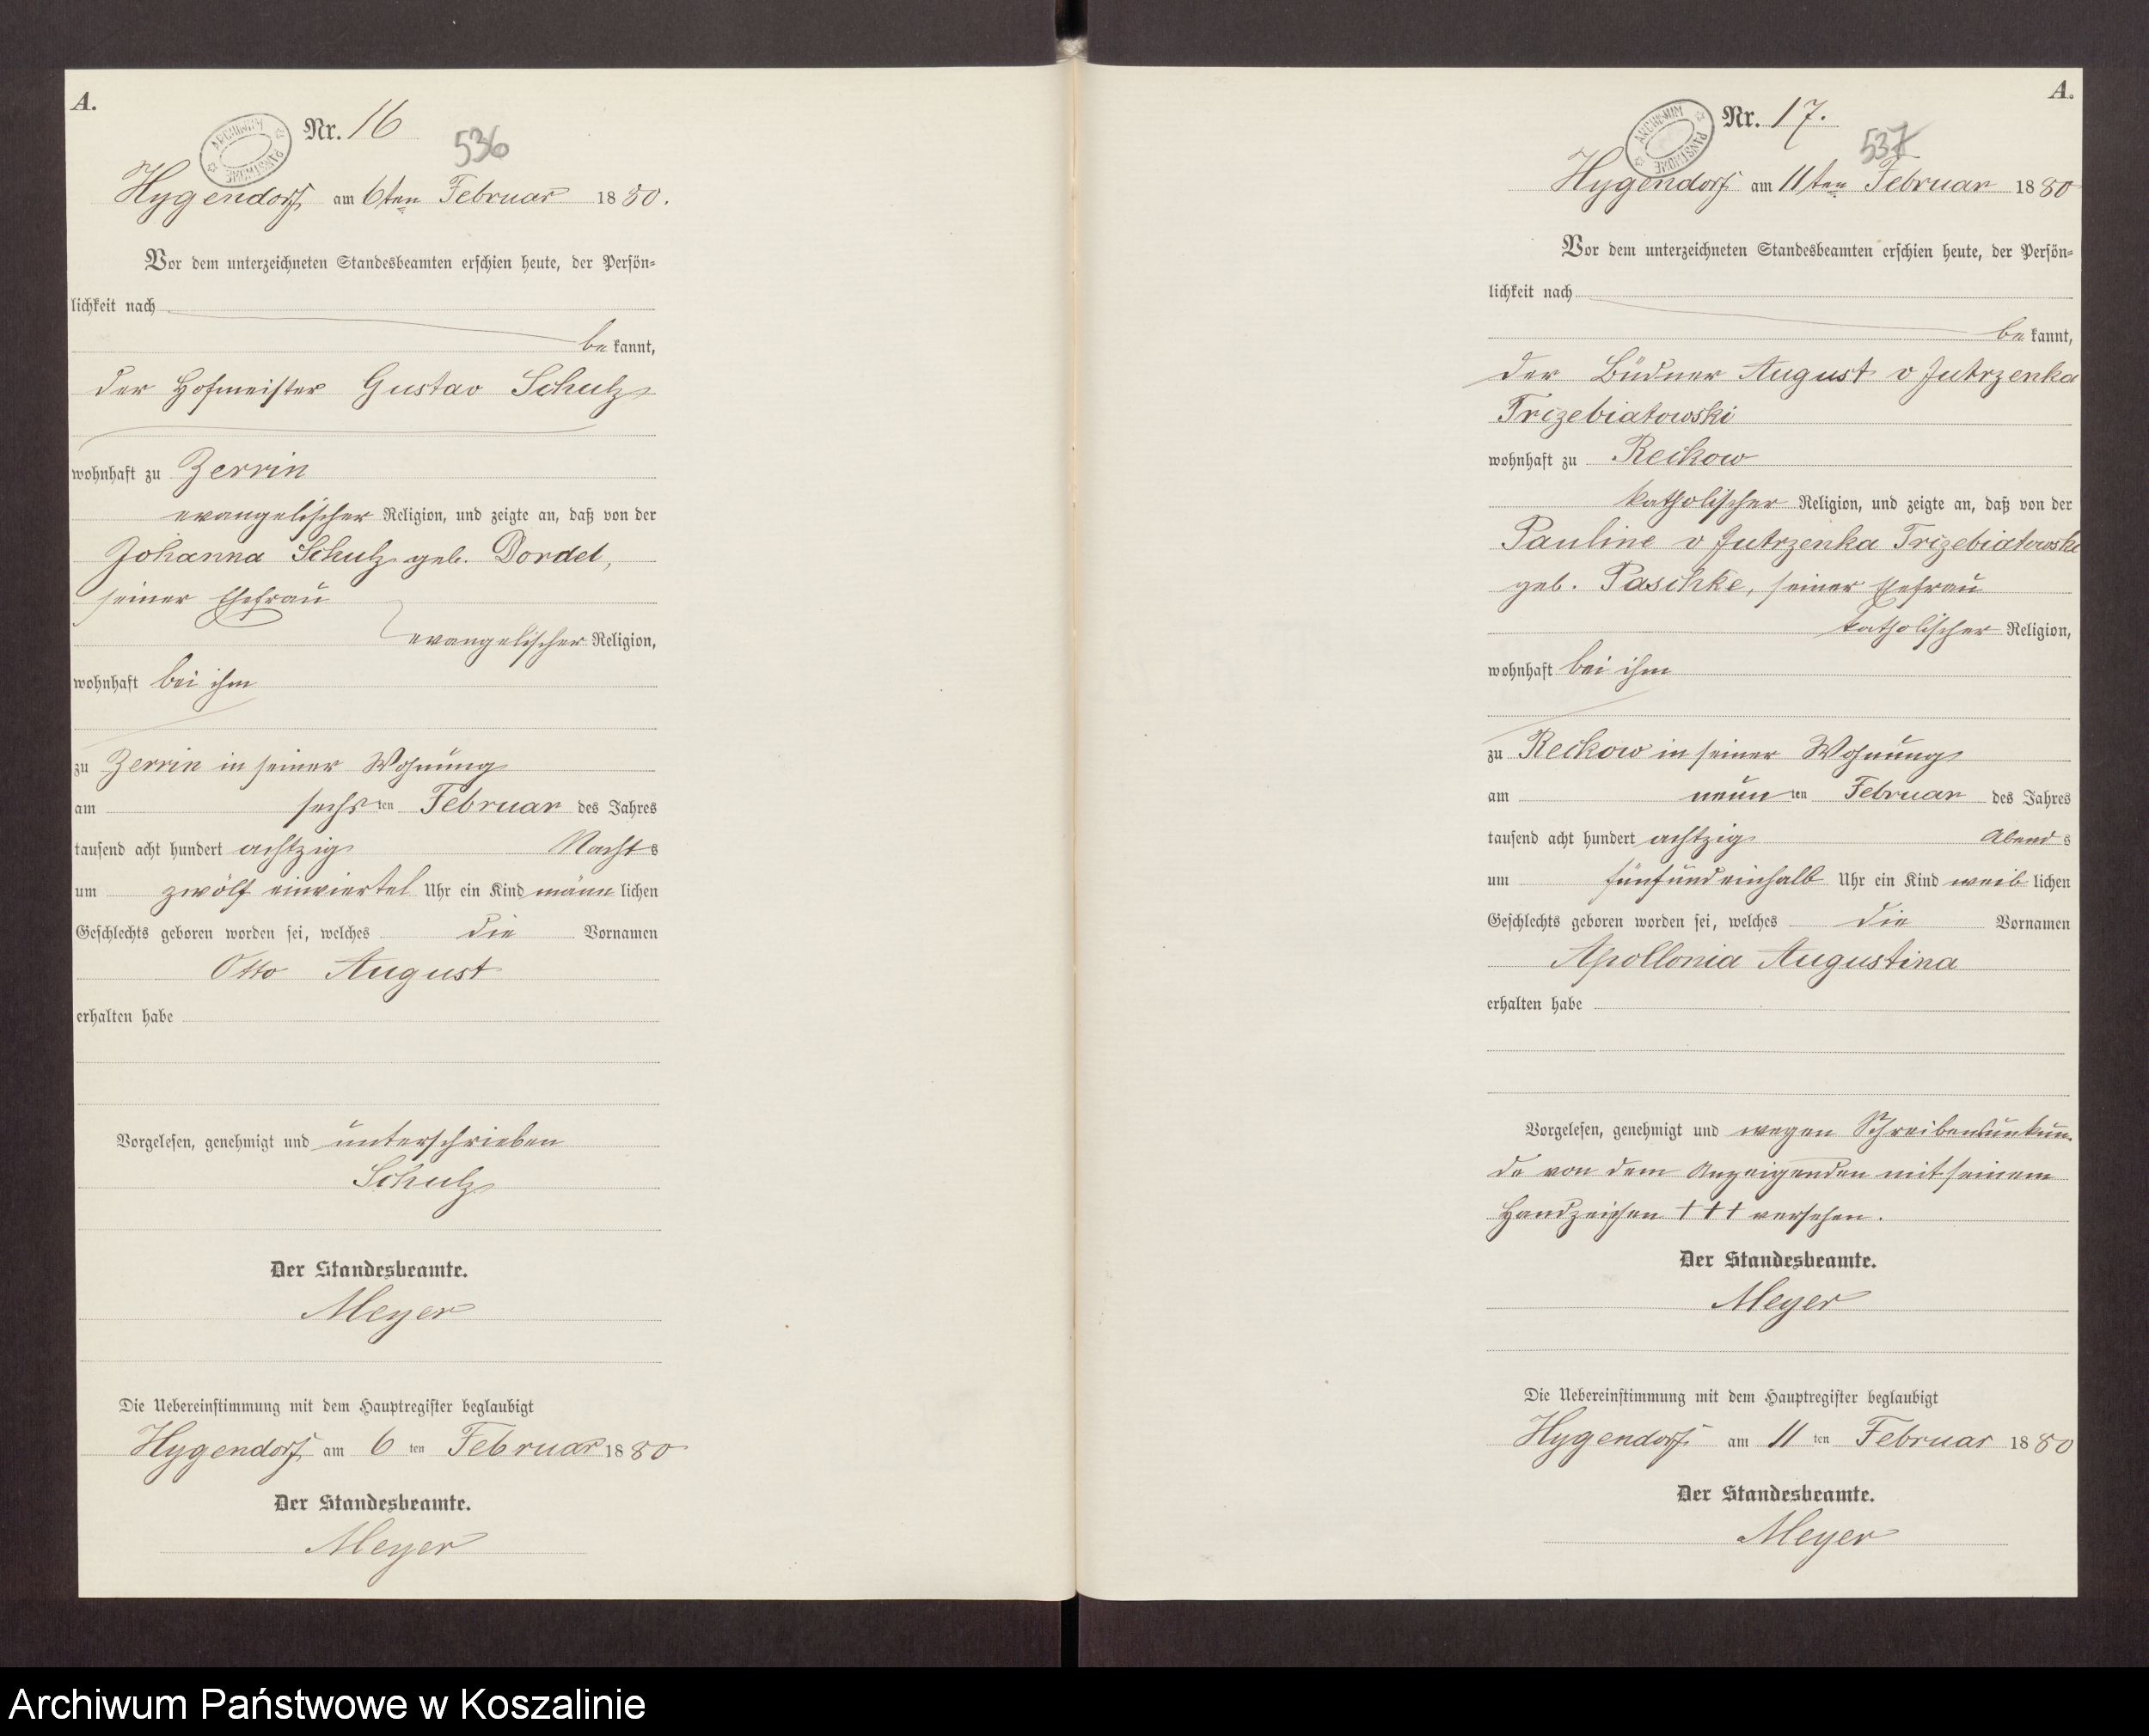 A.
ARCHIWUM PAŃSTWOWE
Nr. 16
536
Hygendorf am 6ten Februar 1880.
Vor dem unterzeichneten Standesbeamten erschien heute, der Persön-
lichkeit nach
be kannt,
der Hofmeister Gustav Schulz
wohnhaft zu Zerrin
evangelischer Religion, und zeigte an, daß von der
Johanna Schulz geb. Dordel,
seiner Ehefrau
evangelischer Religion,
wohnhaft bei ihm
zu Zerrin in seiner Wohnung
am sechs ten Februar des Jahres
tausend acht hundert achtzig Nachts
um zwölf einviertel Uhr ein Kind männ lichen
Geschlechts geboren worden sei, welches die Vornamen
Otto August
erhalten habe
Vorgelesen, genehmigt und unterschrieben
Schulz
Der Standesbeamte.
Meyer
Die Uebereinstimmung mit dem Hauptregister beglaubigt
Hygendorf am 6 ten Februar 1880
Der Standesbeamte.
Meyer
A.
ARCHIWUM PAŃSTWOWE
Nr. 17.
537
Hygendorf am 11ten Februar 1880
Vor dem unterzeichneten Standesbeamten erschien heute, der Persön-
lichkeit nach
be kannt,
der Büdner August v Jutrzenka
Trizebiatowski
wohnhaft zu Reckow
katholischer Religion, und zeigte an, daß von der
Pauline v Jutrzenka Trizebiatowski
geb. Paschke, seiner Ehefrau
katholischer Religion,
wohnhaft bei ihm
zu Reckow in seiner Wohnung
am neun ten Februar des Jahres
tausend acht hundert achtzig Abends
um fünfundeinhalb Uhr ein Kind weib lichen
Geschlechts geboren worden sei, welches die Vornamen
Apollonia Augustina
erhalten habe
Vorgelesen, genehmigt und wegen Schreibensunkun-
de von dem Anzeigenden mit seinem
Handzeichen +++ versehen.
Der Standesbeamte.
Meyer
Die Uebereinstimmung mit dem Hauptregister beglaubigt
Hygendorf am 11 ten Februar 1880
Der Standesbeamte.
Meyer
Archiwum Państwowe w Koszalinie